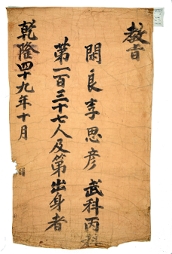 教旨
閑良李思彦武科丙科
第一百三十七人及第出身者
乾隆四十九年十月 日